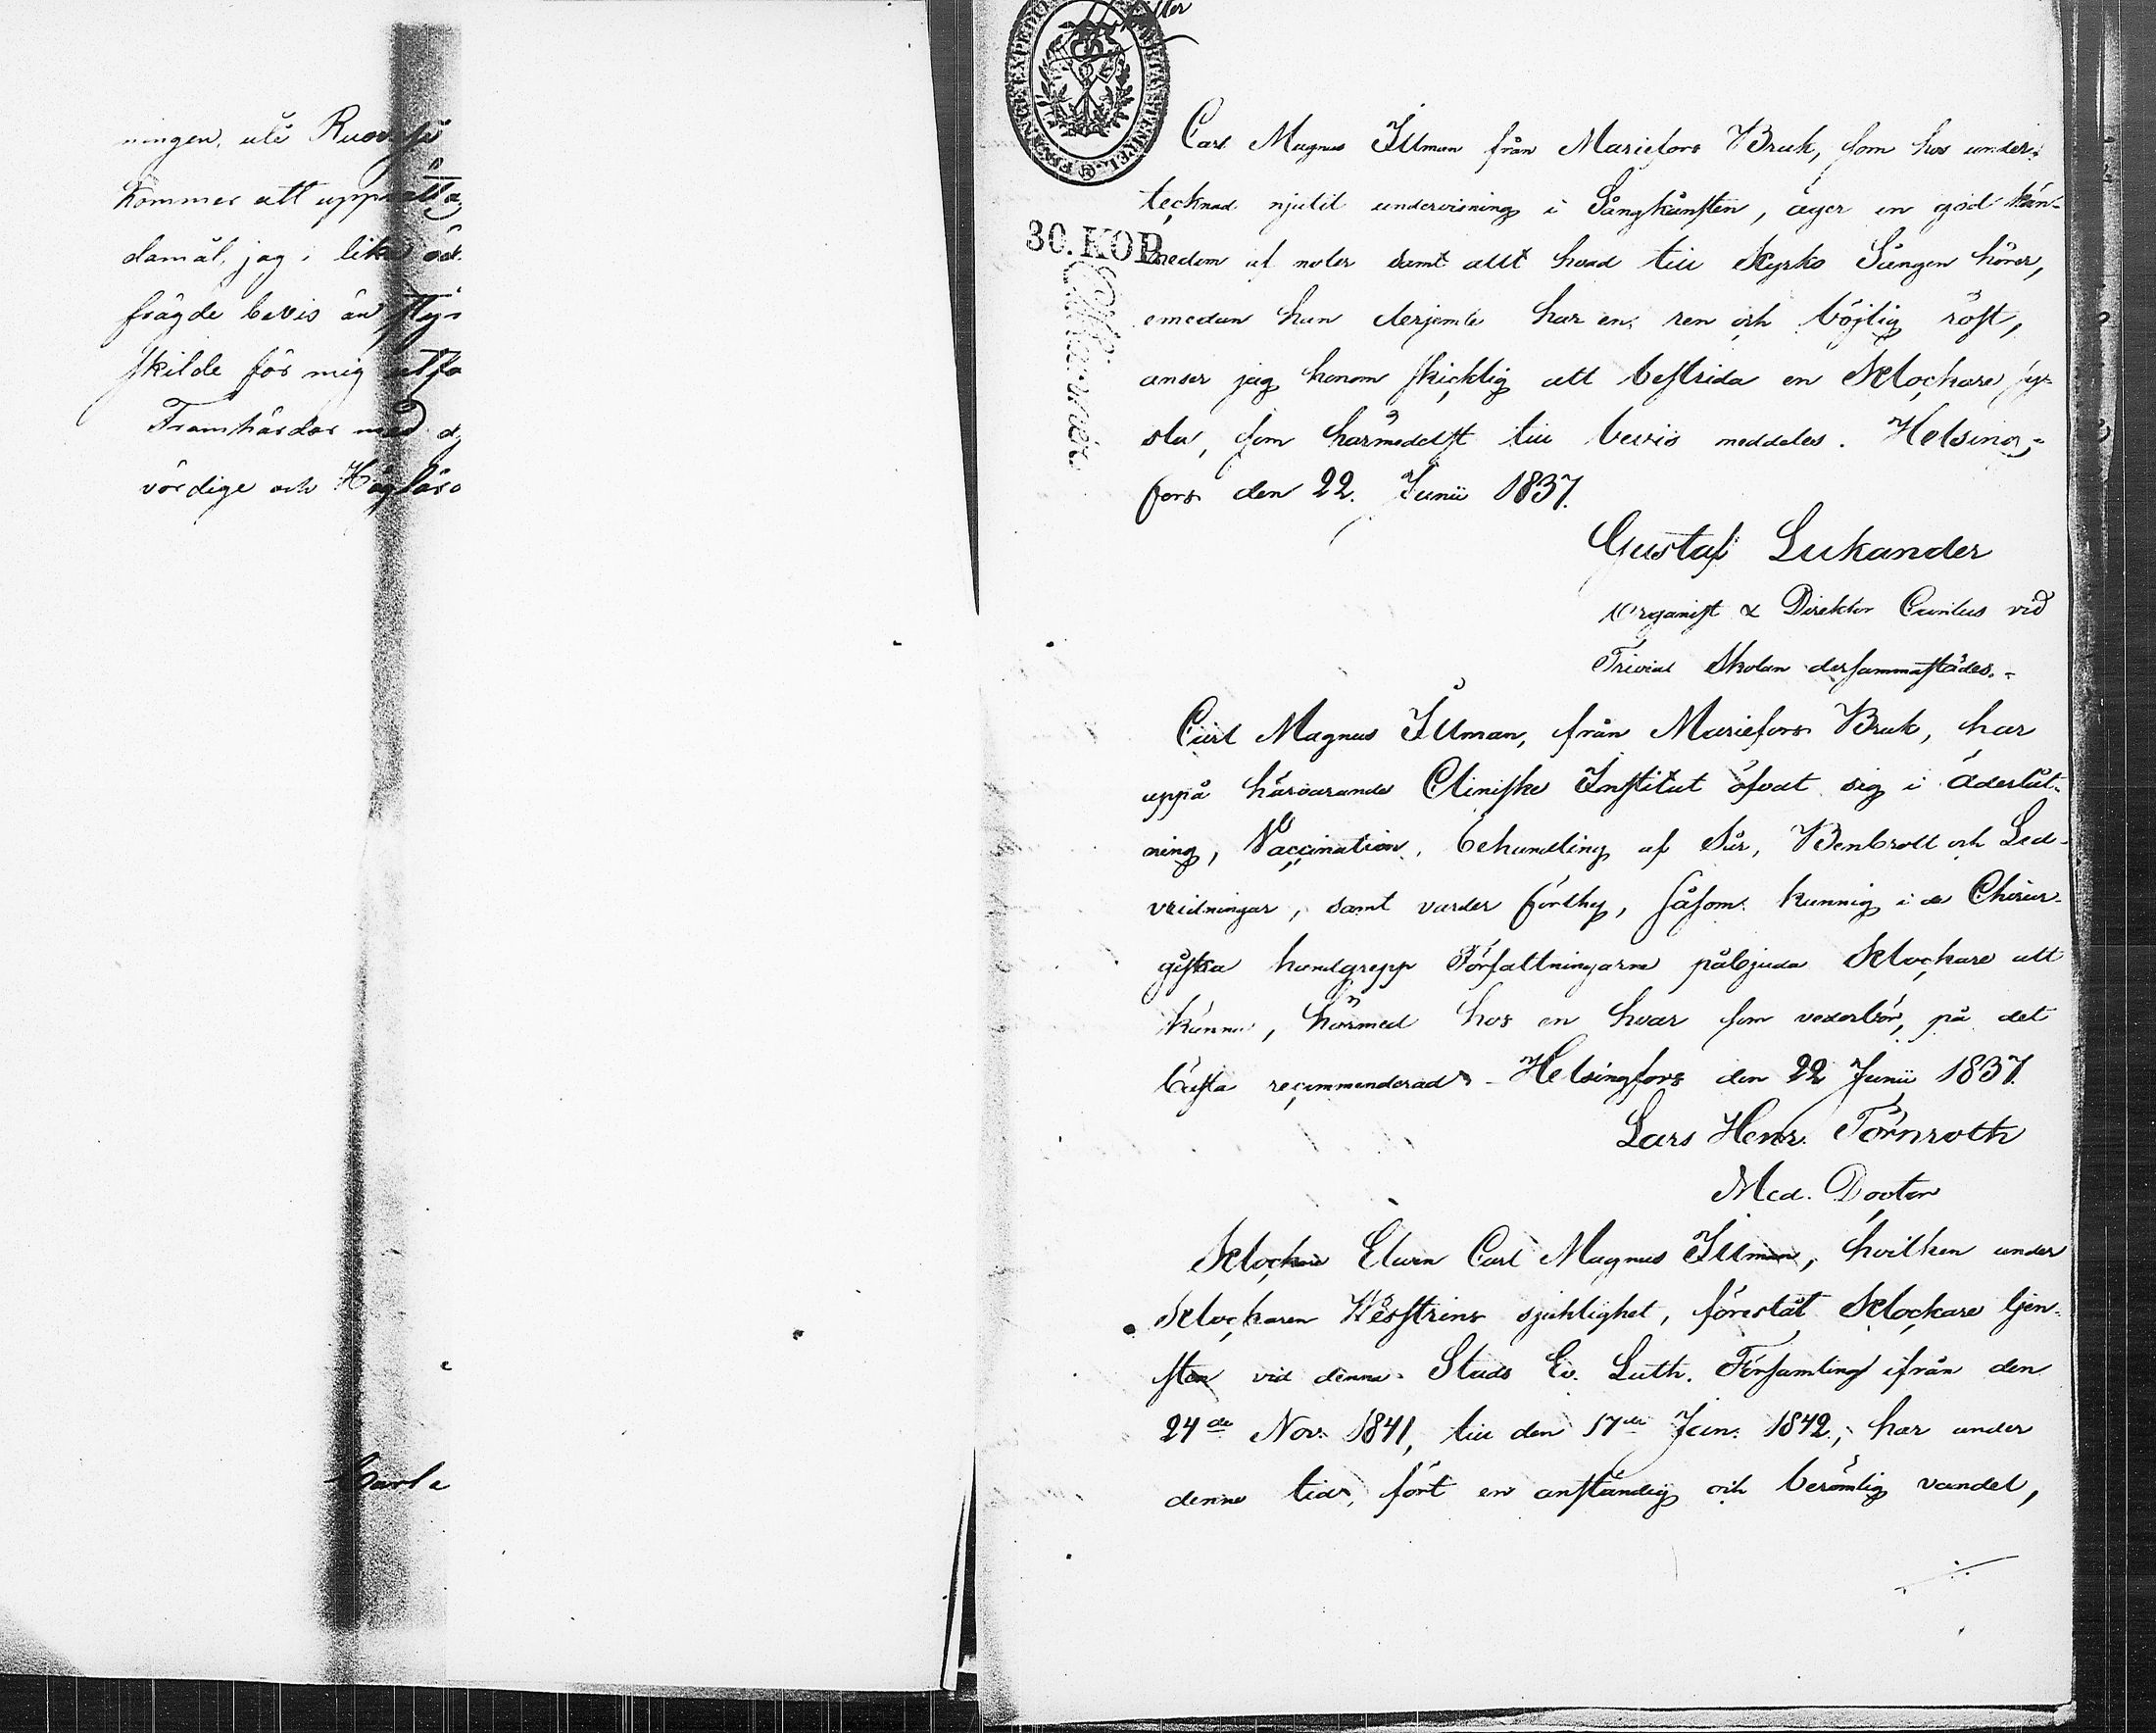 ningen, uti Ruovesi
kommer att upprätta,
damål, jag i lika öd-
frågde bevis än sty-
skilde för mig utfa
Framhärdar med d
vördige och Höglärd
Carl
30. KOP.
Carl Magnus Illman från Mariefors Bruk, som hos under-
tecknad njutit undervisning i Sångkånsten, äger en god kän-
nedom af noter samt allt hvad till Kyrko Sången hörer,
emedan han derjemte har en ren och böjlig röst,
anser jag honom skicklig att bestrida en Klockare sys-
sla, som härmedelst till bevis meddeles. Helsing-
fors den 22. Junii 1837.
Gustaf Lukander
Organist & Direktor Cantus vid
Trivial Skolan dersammastädes.
Carl Magnus Illman, från Mariefors Bruk, har
uppå härvarande Cliniske Institut öfvat sig i Åderlåt-
ning, Vaccination, behandling af Sår, Benbrott och Led-
vridningar, samt varder förthy, såsom kunnig i de Chirur-
giska handgrepp Författningarne påbjuda Klockare att
känna, härmed hos en hvar som vederbör, på det
bästa recommenderad. Helsingfors den 22 Junii 1837.
Lars Henr. Törnroth
Med. Doctor
Klockare Eleven Carl Magnus Illman, hvilken under
Klockaren Wesstrins sjuklighet, förestått Klockare tjen-
sten vid denna Stads Ev. Luth. Församling ifrån den
24de Nov. 1841, till den 17de Jan. 1842, har under
denna tid, fört en anständig och berömlig vandel,